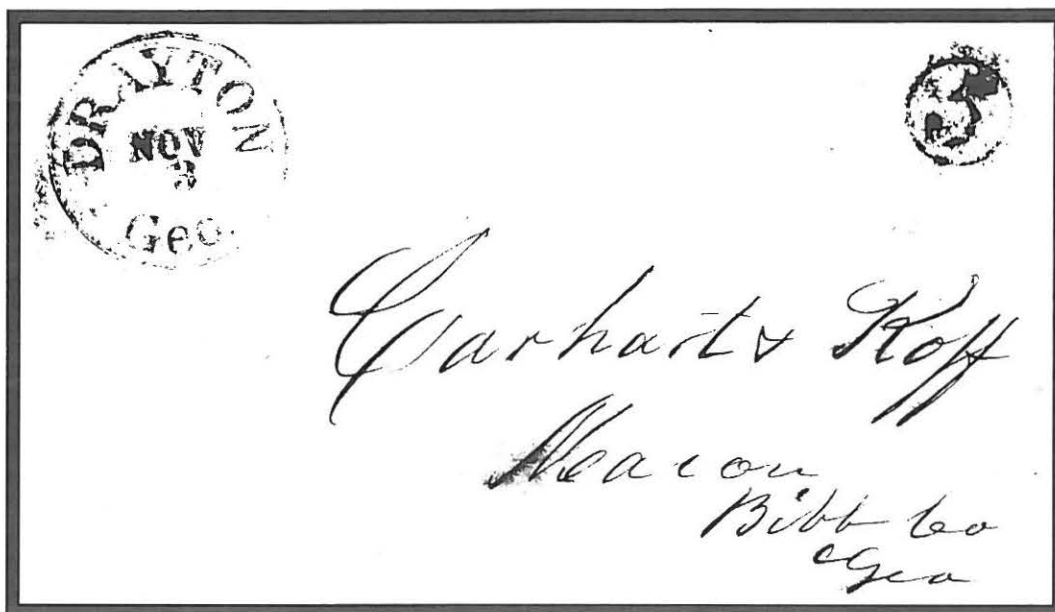 DRAYTON
NOV
3
Geo.
5
Carhart & Roff
Macon
Bibb Co
Geo